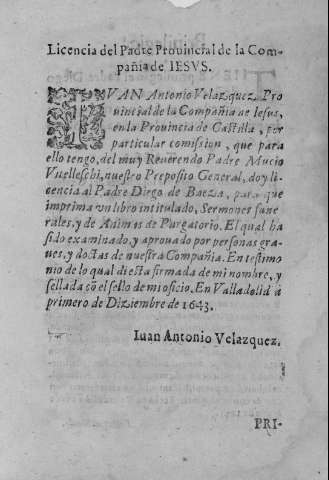 Licencia del Padre Prouincial de la Com-
pañia de IESVS.
IVAN Antonio Velazquez, Pro
uincial de la Compañia de Iesus,
en la Prouincia de Castilla, por
particular comission, que para
ello tengo, del muy Reuerendo Padre Mucio
Vitelleschi, nuestro Preposito General, doy li
cencia al Padre Diego de Baeza, para que
imprima vn libro intitulado, Sermones fune
rales, y de Animas de Purgatorio. El qual ha
sido examinado, y aprouado por personas gra-
ues, y doctas de nuestra Compañia. En testimo
nio de lo qual di esta firmada de mi nombre, y
sellada cõ el sello de mi oficio. En Valladolid à
primero de Diziembre de 1643.
Iuan Antonio Velazquez.
PRI-